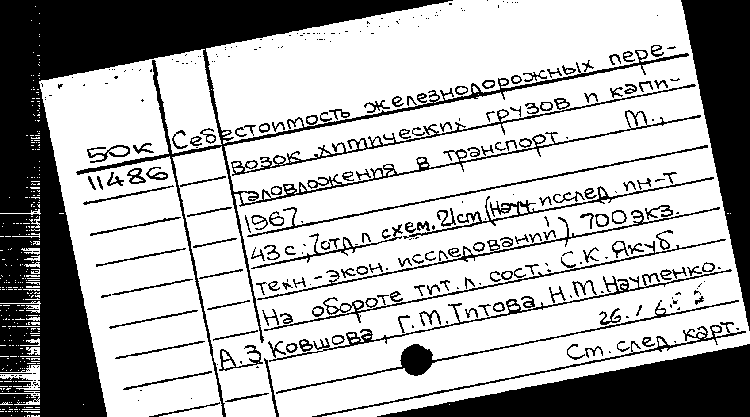 Себестоимость железнодорожных пере-
50к
11486
возок химических грузов и капи-
таловложения в транспорт. М.,
1967.
43с; 7отд.л схем. 21см (Науч. исслед. ин-т
техн.-экон. исследований). 700экз.
На обороте тит.л. сост.: С.К.Якуб,
А.З.Ковшова, Г.М.Титова, Н.М.Науменко.
26.1
См. след. карт.